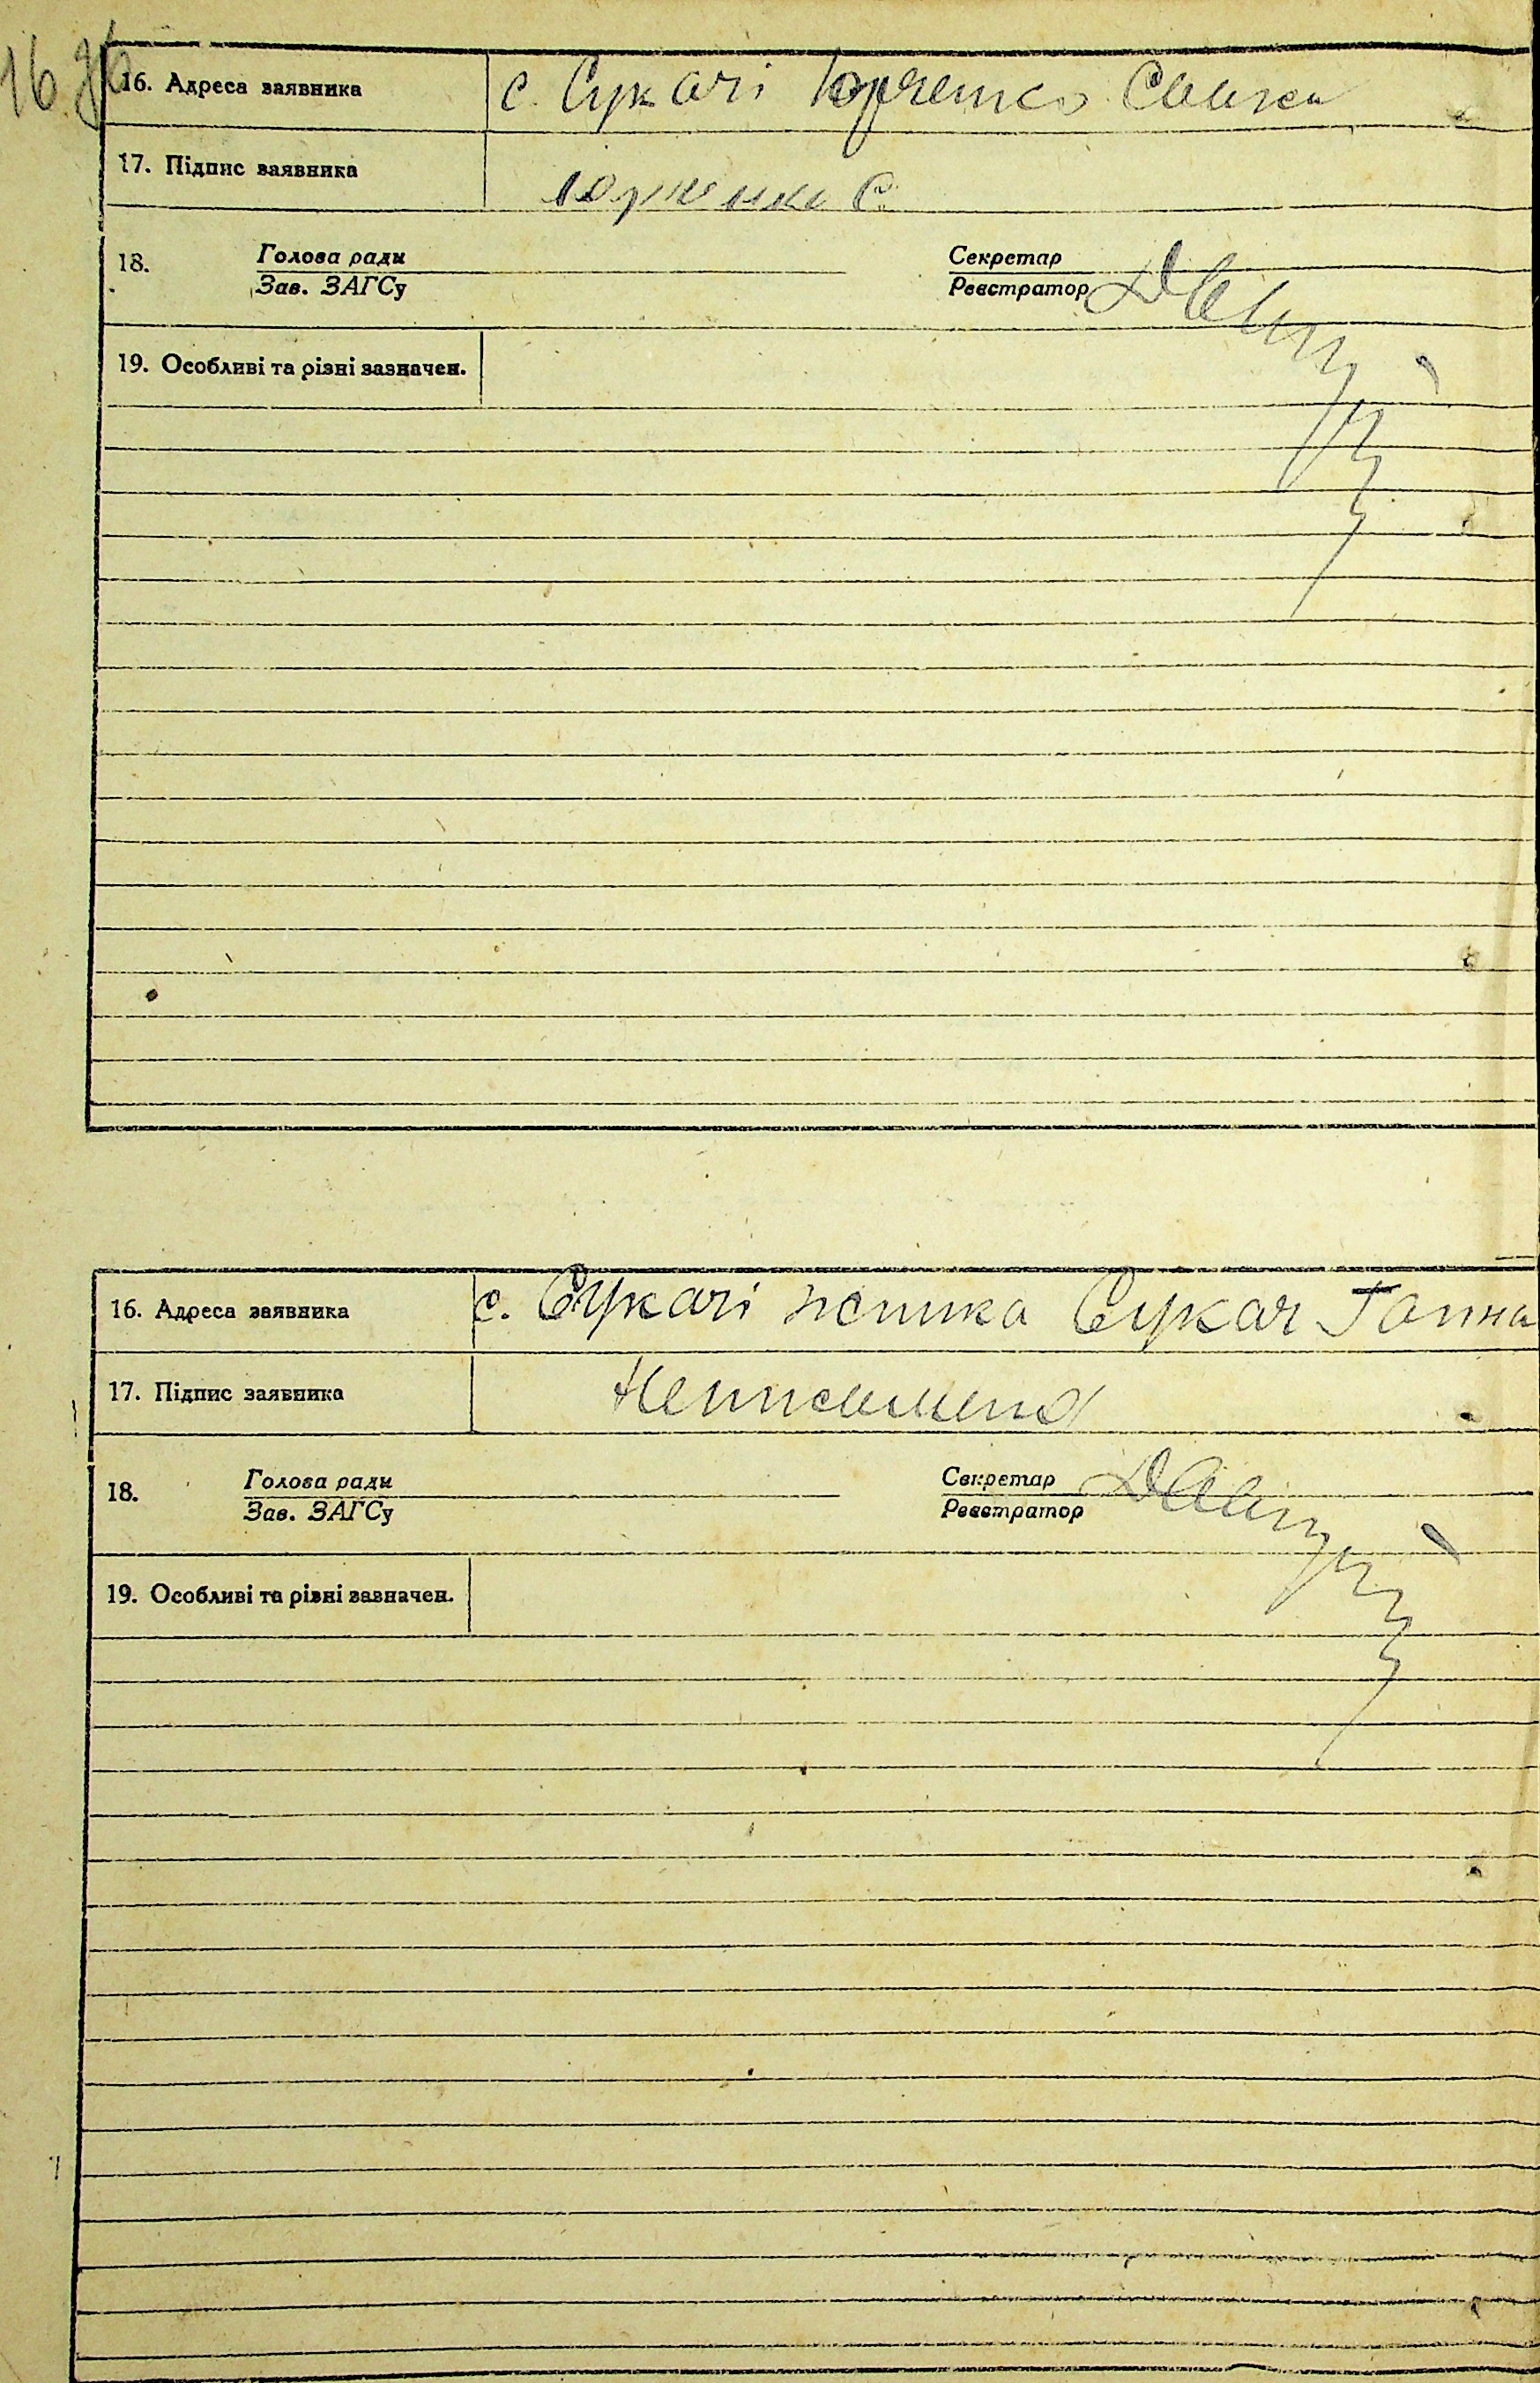 16 зв
16. Адреса заявника с. Сукачі Юрченко Савка
17. Підпис заявника Юрченко С.
18. Голова ради Секретар
Зав. ЗАГСу Реєстратор
19. Особливі та різні зазначен.
16. Адреса заявника с. Сукачі жінка Сукач Ганна
17. Підпис заявника Неписьмена
18. Голова ради Секретар
Зав. ЗАГСу Реєстратор
19. Особливі та різні зазначен.